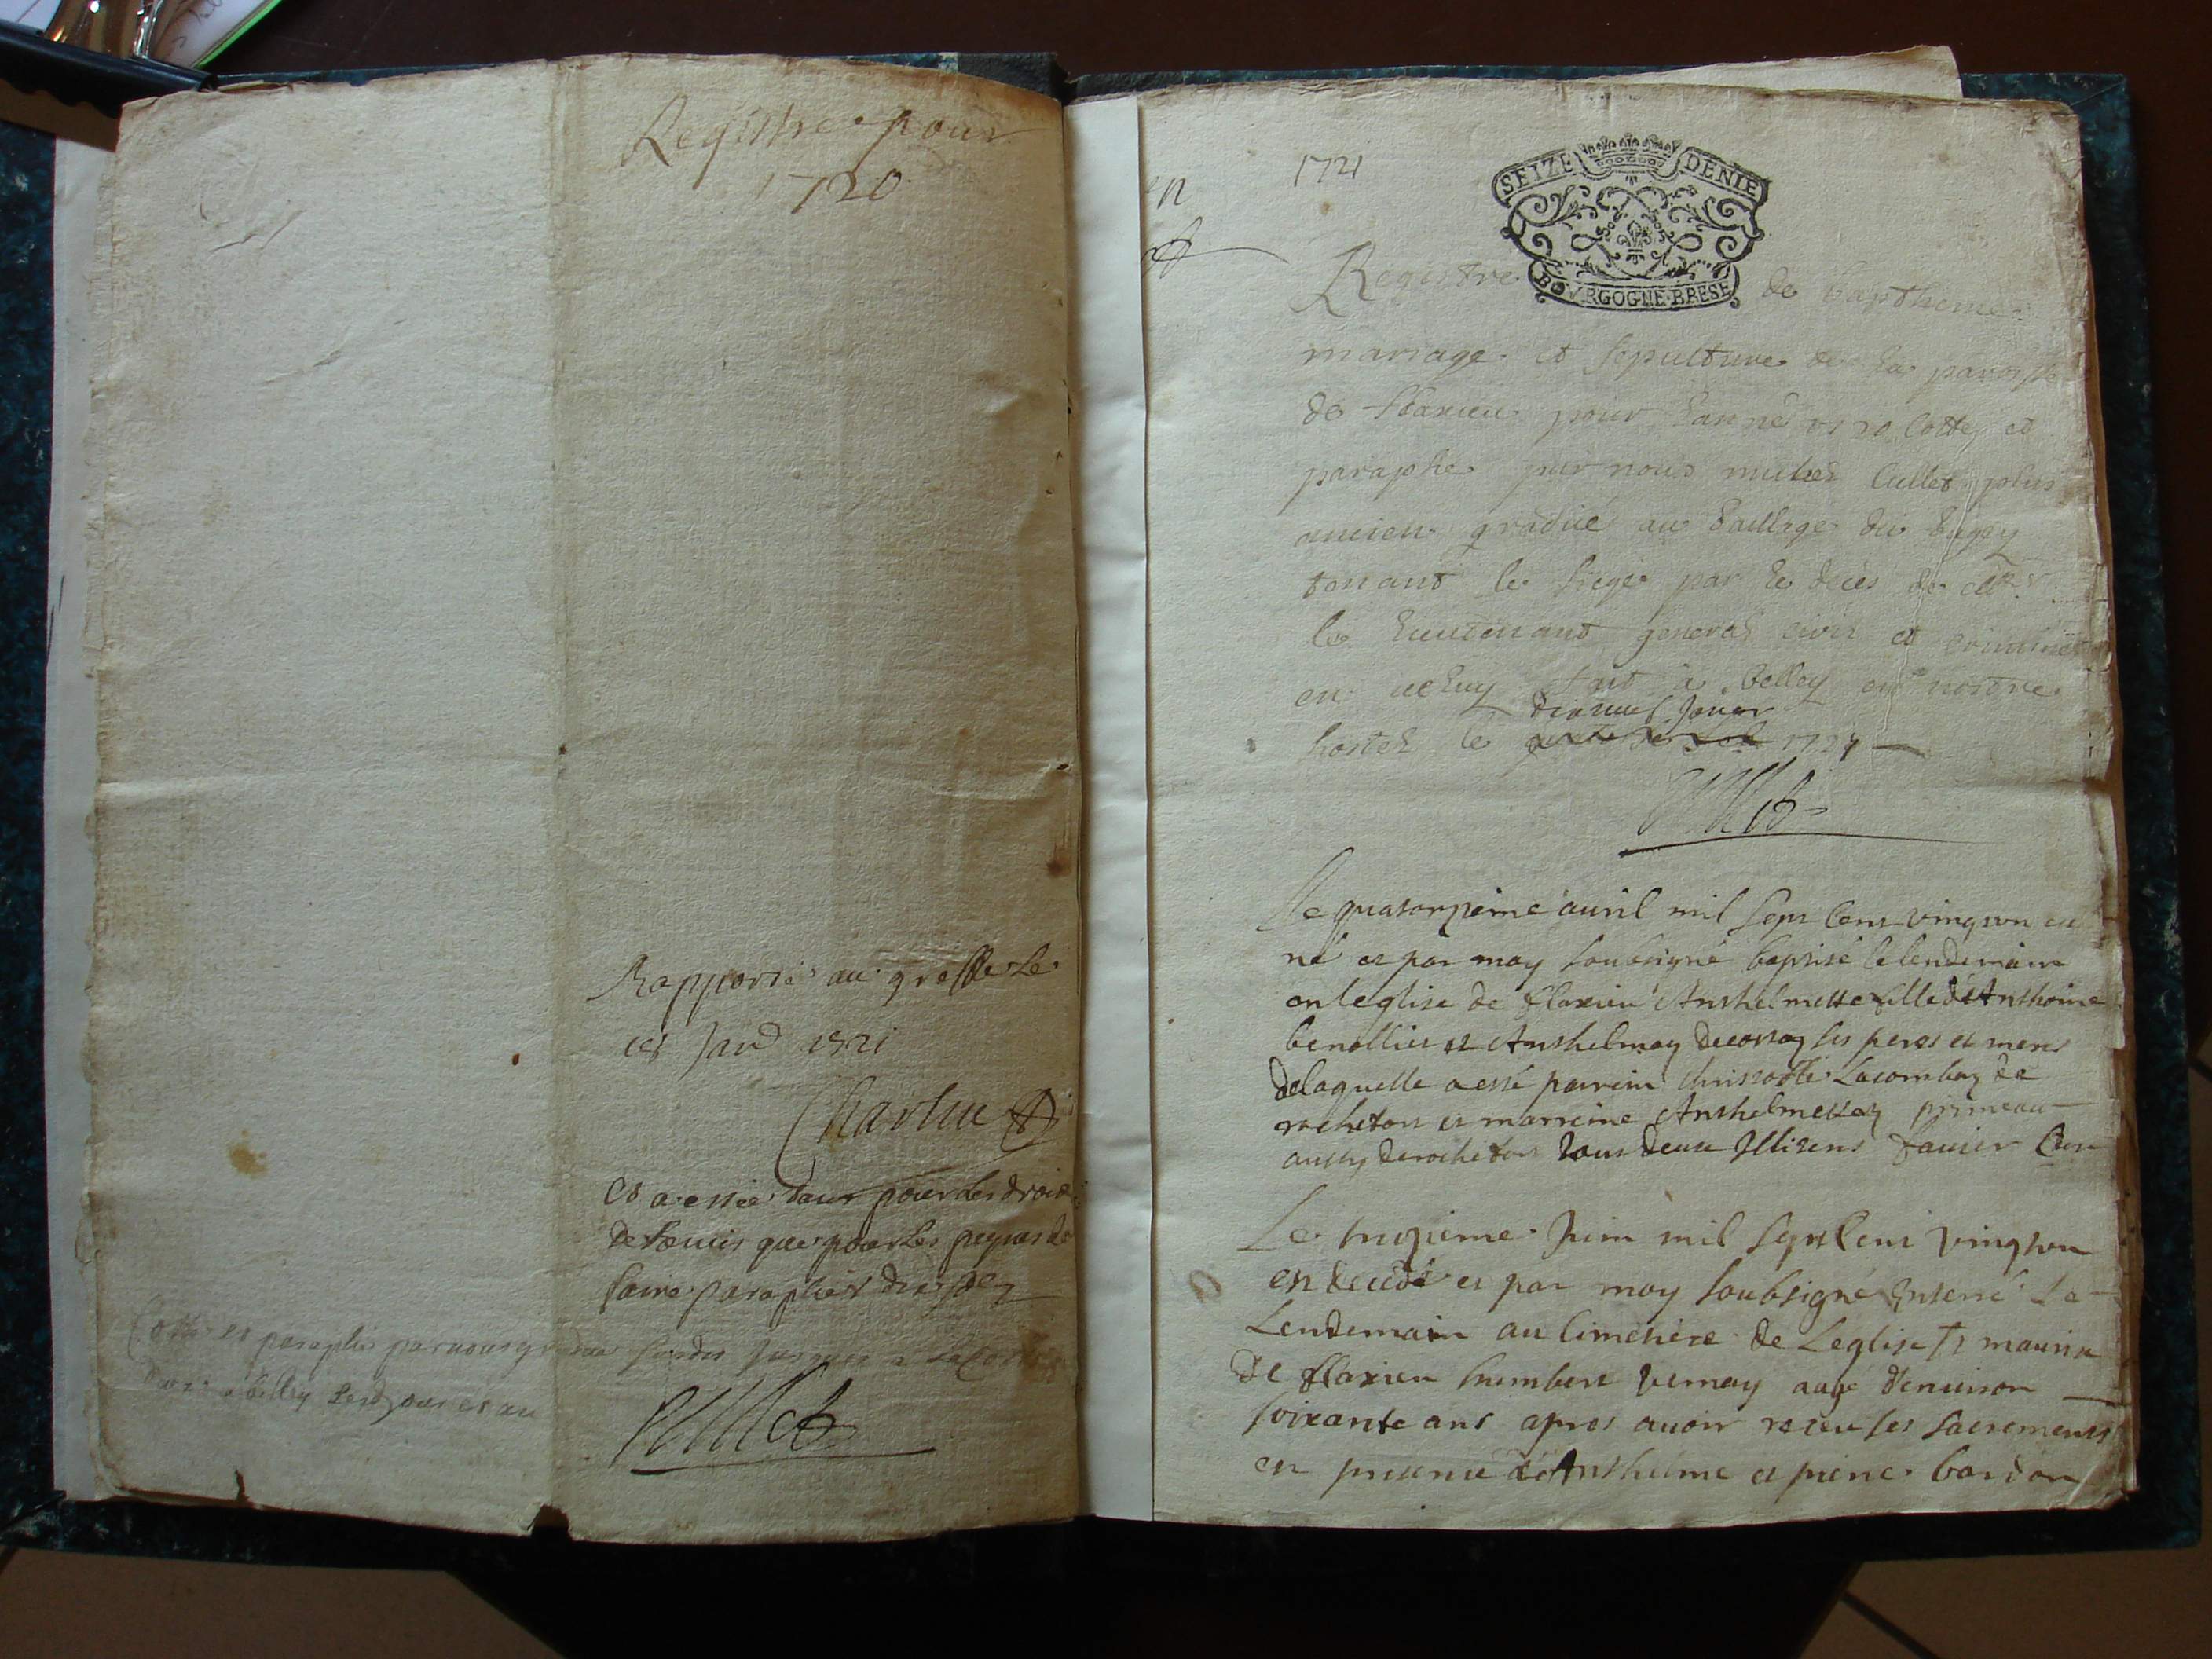 Registre pour
1720
Rapporté au greffe le
Janv 1721
Charlin
et a estée
que pour les
faire parapher
Cotté et paraphé par nous
a belley
Cullet
1721
SEIZE DENIE
BOVRGOGNE BRESE
Registre de baptheme
mariage et sepulture de la paroisse
de flaxieu pour lannè cotté et
paraphe par nous michel Cullet plus
ancien gradué au bailliage du bugey
tenant le siege par le deces de
le lieutenant general civil et criminel
en iceluy fait à belley en nostre
hostel le
Cullet
Le quatorzieme auril mil sept cent vingt un est
né et par moy soubsigné baptisé le lendemain
en leglise de flaxieu Anthelmette fille d'Anthoine
et Anthelmaz ses peres et meres
delaquelle a esté parrein Christoffle Lacombaz de
rocheton et marreine Anthelmettaz primeau
aussy de rocheton tous deux Illiterés fauier Curé
Le treizieme Juin mil sept cent vingt un
est decedé et par moy soubsigné Enterré le
Lendemain au cimetiere de Leglise St maurice
de flaxieu humbert vernay aagé d'enuiron
soixante ans apres auoir receu ses sacrements
en presence d'Anthelme et pierre bardon